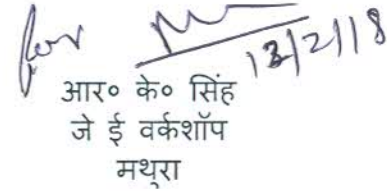 for
13/2/18
आर० के० सिंह
जे ई वर्कशॉप
मथुरा